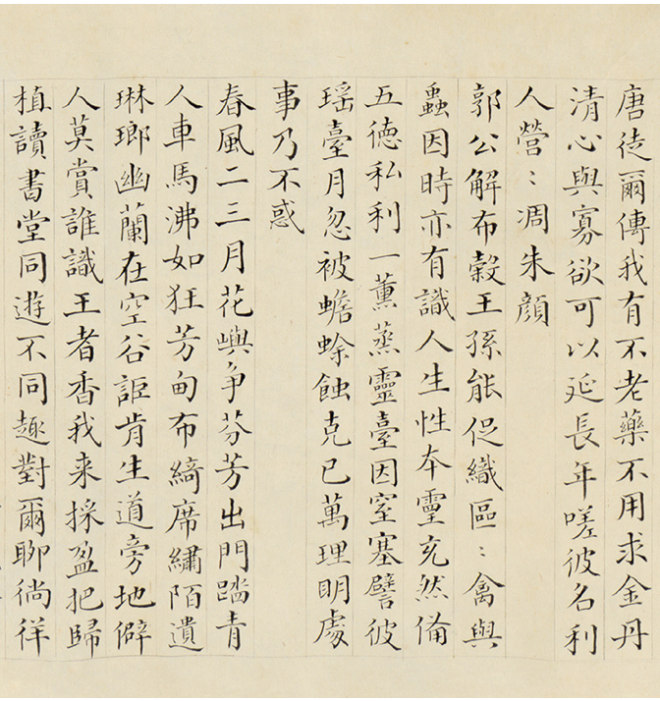 唐徒爾傳我有不老藥不用求金丹
清心與寡欲可以延長年嗟彼名利
人營〻凋朱顔
郭公解布穀王孫能促織區〻禽與
蟲因時亦有識人生性本靈充然備
五德私利一薰蒸靈臺因窒塞譬彼
瑶臺月忽被蟾蜍蝕克己萬理眀處
事乃不惑
春風二三月花嶼争芬芳出門踏青
人車馬沸如狂芳甸布綺席繡陌遺
琳瑯幽蘭在空谷詎肯生道旁地僻
人莫賞誰識王者香我来採盈把歸
植讀書堂同遊不同趣對爾聊徜徉